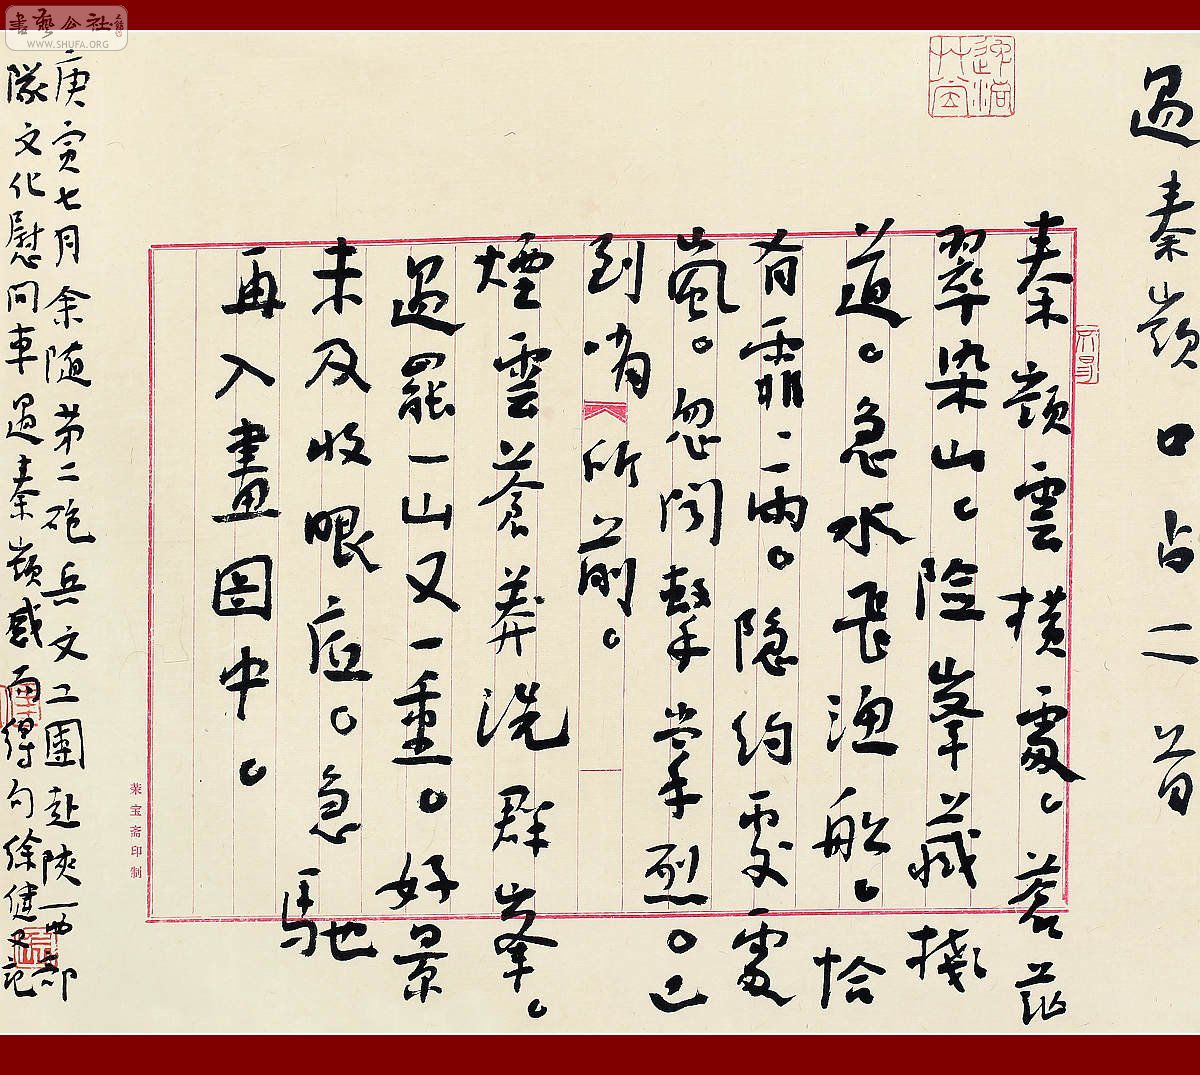 書藝公社
WWW.SHUFA.ORG
過秦嶺口占二首
秦嶺雲橫處。蒼茫
翠染山。險峯藏棧
道。急水畏渔船。恰
有霏〻雨。隐約
嵐。忽闻擊掌烈。已
到哨所前。
煙雲蒼莽洗群峯。
過罷一山又一重。好景
未及收眼底。急馳
再入畫图中。
庚寅七月余随第二砲兵文工團赴陝西部
隊文化慰问車過秦嶺感而得句徐健又記
荣宝斋印制